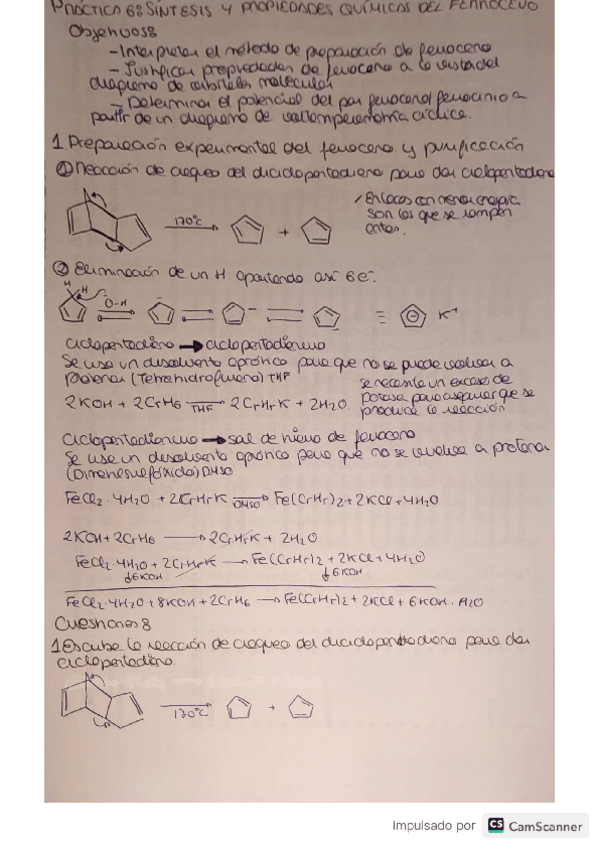 PRACTICA 6: SÍNTESIS Y PROPIEDADES QUÍMICAS DEL FERROCENO
Objetivos:
-Interpretar el método de preparación de ferroceno
- Justificar propiedades de ferroceno a la vista del
diagrama de orbitales molecular
- Determinar el potencial del par ferroceno/ferrocinio a
partir de un diagrama de voltamperometría cíclica.
1 Preparación experimental del ferroceno y purificación
① Reacción de craqueo del diciclopentadieno para dar ciclopentadieno
170°C
+
Enlaces con menor energía
son los que se rompen
antes.
② Eliminación de un H aportando así 6e-.
H
H
O-H
≡
K+
ciclopentadieno → ciclopentadieniuo
Se usa un disolvente aprótico para que no se puede volver a
protonar (Tetrahidrofurano) THF
2KOH + 2C5H6 THF 2C5H5K + 2H2O
se necesita un exceso de
potasa para asegurar que se
produce la reacción
Ciclopentadieniuo → sal de hierro de ferroceno
Se usa un disolvente aprótico para que no se vuelva a protonar
(Dimetilsulfóxido) DMSO
FeCl2·4H2O + 2C5H5K DMSO Fe(C5H5)2 + 2KCl + 4H2O
2KOH + 2C5H6 → 2C5H5K + 2H2O
FeCl2·4H2O + 2C5H5K → Fe(C5H5)2 + 2KCl + 4H2O
↓6KOH
↓6KOH
FeCl2·4H2O + 8KOH + 2C5H6 → Fe(C5H5)2 + 2KCl + 6KOH·H2O
Cuestiones:
1 Escribe la reacción de craqueo del diciclopentadieno para dar
ciclopentadieno.
170°C
+
Impulsado por CS CamScanner